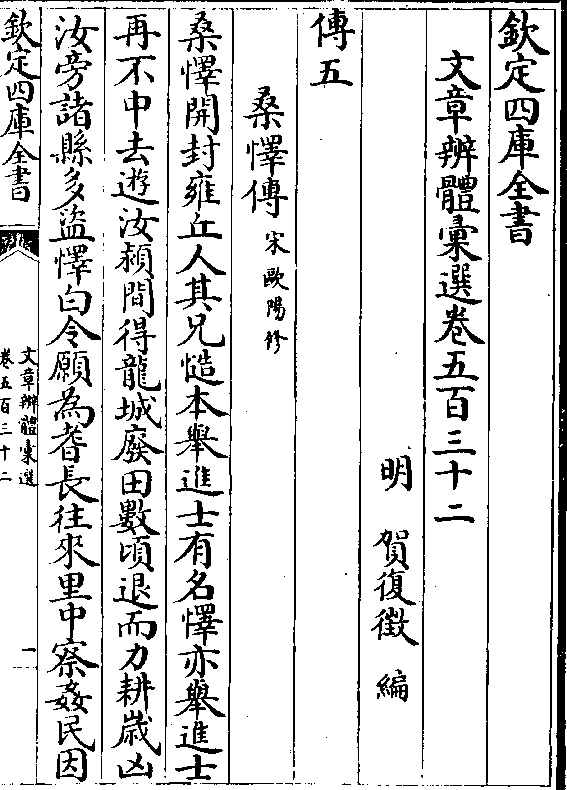 欽定四庫全書
文章辨體彙選卷五百三十二
明 賀復徵 編
傳五
桑懌傳 宋歐陽修
桑懌開封雍丘人其兄慥本舉進士有名懌亦舉進士
再不中去遊汝潁間得龍城廢田數頃退而力耕歲凶
汝旁諸縣多盜懌白令願為耆長往來里中察姦民因
欽定四庫全書
文章辨體彙選
卷五百三十二
一